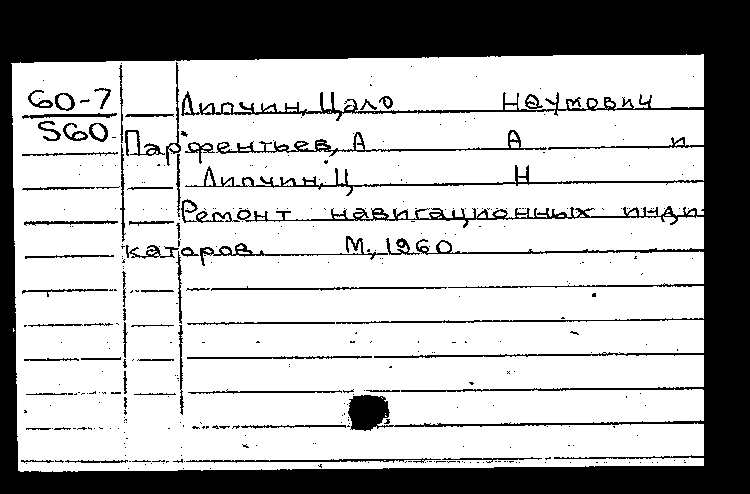 60-7 Липчин, Цало Наумович
560 Парфентьев, А А и
Липчин, Ц Н
Ремонт навигационных инди-
каторов. М., 1960.